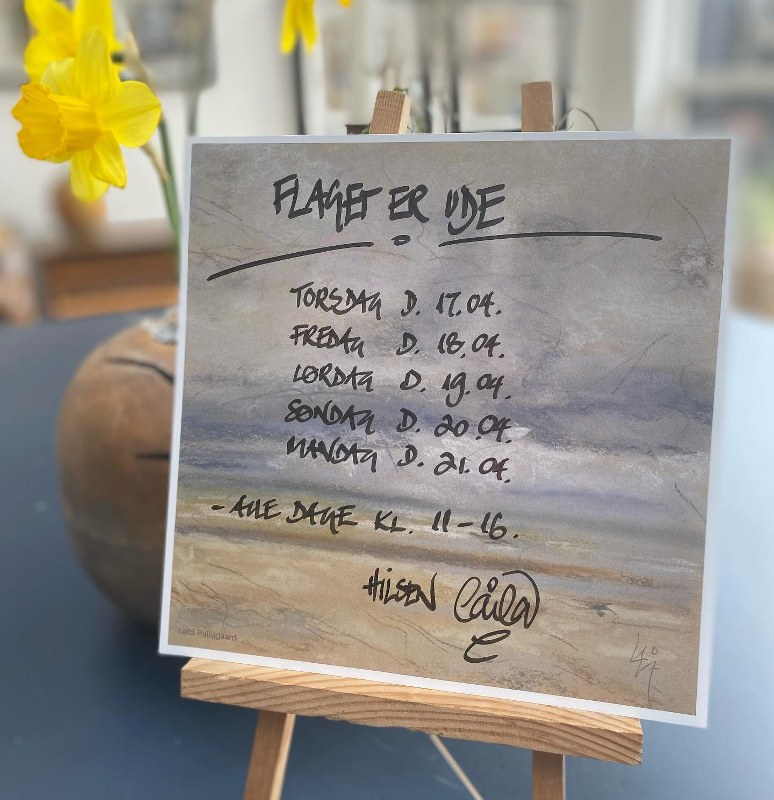 FLAGET ER UDE
TORSDAG D. 17.04.
FREDAG D. 18.04.
LØRDAG D. 19.04.
SØNDAG D. 20.04.
MANDAG D. 21.04.
- ALLE DAGE KL. 11-16.
HILSEN Laila
Laila Pallisgaard